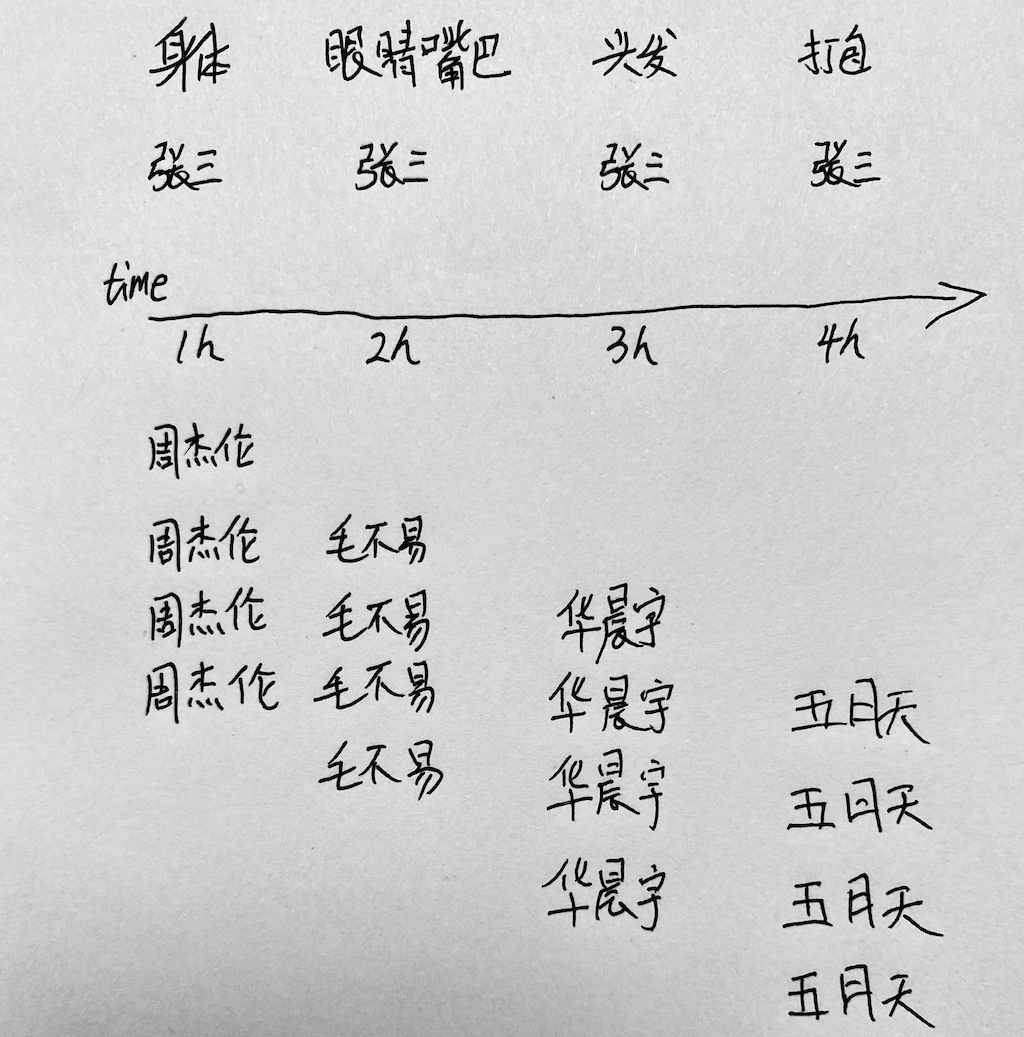 身体 眼睛嘴巴 头发 打包
张三 张三 张三 张三
time
1h 2h 3h 4h
周杰伦
周杰伦 毛不易
周杰伦 毛不易 华晨宇
周杰伦 毛不易 华晨宇 五月天
毛不易 华晨宇 五月天
华晨宇 五月天
五月天